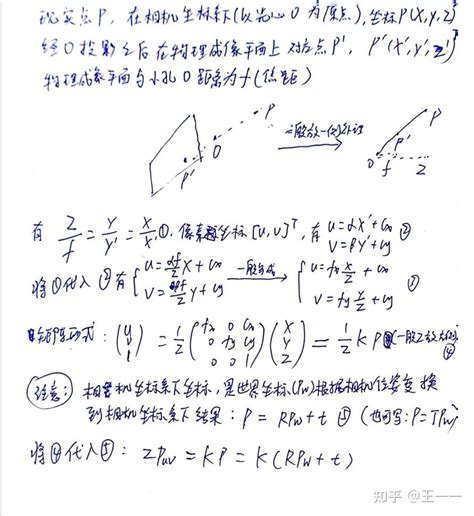 现实点P,在相机坐标系下(以光心O为原点),坐标P(X,Y,Z)ᵀ
经O投影之后在物理成像平面上对应点P', P'(X',Y',Z')ᵀ
物理成像平面与小孔O距离为f(焦距)
P
O
P'
一般放一侧处理
P
P'
O f Z
有 Z/f = Y/Y' = X/X' ①, 像素坐标[u,v]ᵀ, 有 { u=αX'+Cx
V=βY'+Cy ②
将①代入②有 { u=αf/Z X+Cx
V=βf/Z Y+Cy
一般写成
{ u=fx X/Z+Cx
V=fy Y/Z+Cy ③
矩阵形式: (u v 1) = 1/Z (fx 0 Cx 0 fy Cy 0 0 1) (X Y Z) = 1/Z K P (一般Z放左侧) ④
注意: 相机坐标系下坐标,是世界坐标(Pw)根据相机位姿变换
到相机坐标系下结果: P=RPw+t ⑤ (也可写:P=TPw)
将④代入⑤: ZPuv = KP = K(RPw+t)
知乎 @王一一